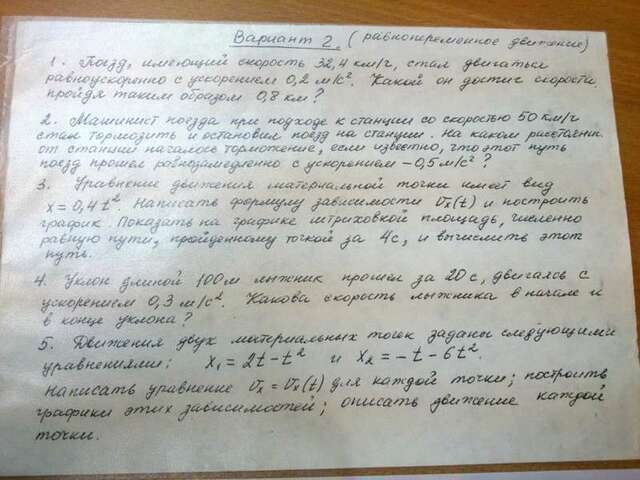 Вариант 2. (равнопеременное движение)
1. Поезд, имеющий скорость 32,4 км/г, стал двигаться
равноускоренно с ускорением 0,2 м/с². Какой он достиг скорости,
пройдя таким образом 0,8 км?
2. Машинист поезда при подходе к станции со скоростью 50 км/г
стал тормозить и остановил поезд на станции. На каком расстоянии
от станции началось торможение, если известно, что этот путь
поезд прошел равнозамедленно с ускорением -0,5 м/с²?
3. Уравнение движения материальной точки имеет вид
x = 0,4 t². Написать формулу зависимости υx(t) и построить
график. Показать на графике штриховкой площадь, численно
равную пути, пройденному точкой за 4с, и вычислить этот
путь.
4. Уклон длиной 100 м лыжник прошел за 20 с, двигаясь с
ускорением 0,3 м/с². Какова скорость лыжника в начале и
в конце уклона?
5. Движения двух материальных точек заданы следующими
уравнениями: x₁ = 2t - t² и x₂ = -t - 6t².
Написать уравнение υx = υx(t) для каждой точки; построить
графики этих зависимостей; описать движение каждой
точки.